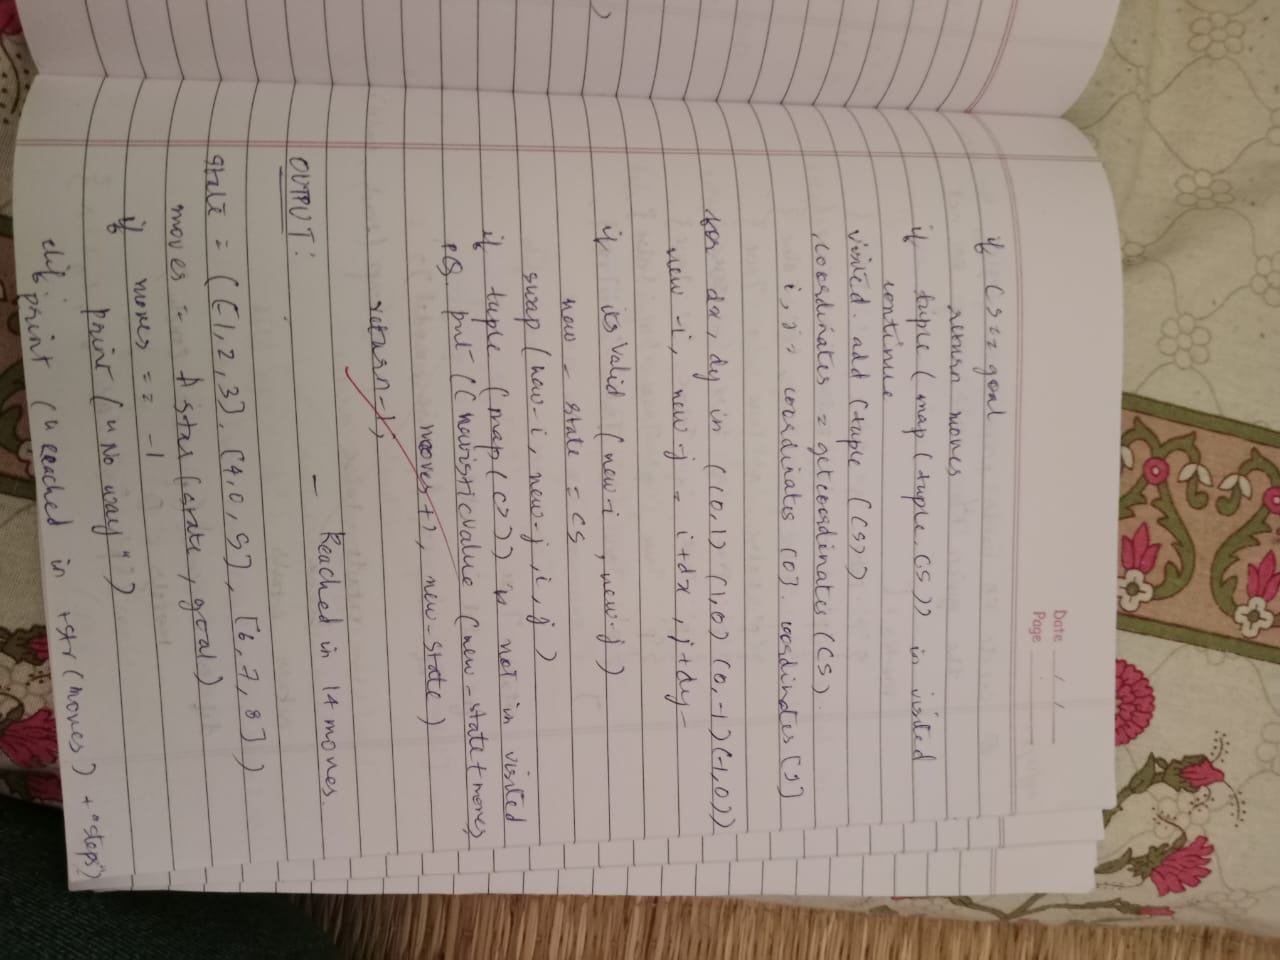 Date / /
Page
if cs == goal
return moves
if tuple (map (tuple, cs)) in visited
continue
visited. add (tuple (cs))
coordinates = getcoordinates (cs).
i, j = coordinates [0]. coordinates [1]
for dx, dy in ((0,1) (1,0) (0,-1) (-1,0))
new-i, new-j = i+dx, j+dy
if its valid (new-i, new-j)
new-state = cs
swap (new-i, new-j, i, j)
if tuple (map (cs)) is not in visited
pq. put ((heuristicvalue (new-state + moves,
moves+1, new-state)
return -1;
- Reached in 14 moves.
OUTPUT:
state = ([1, 2, 3], [4, 0, 5], [6, 7, 8])
moves = A star (state, goal)
if moves == -1
print ("No way")
print (reached in + str (moves) + "steps")